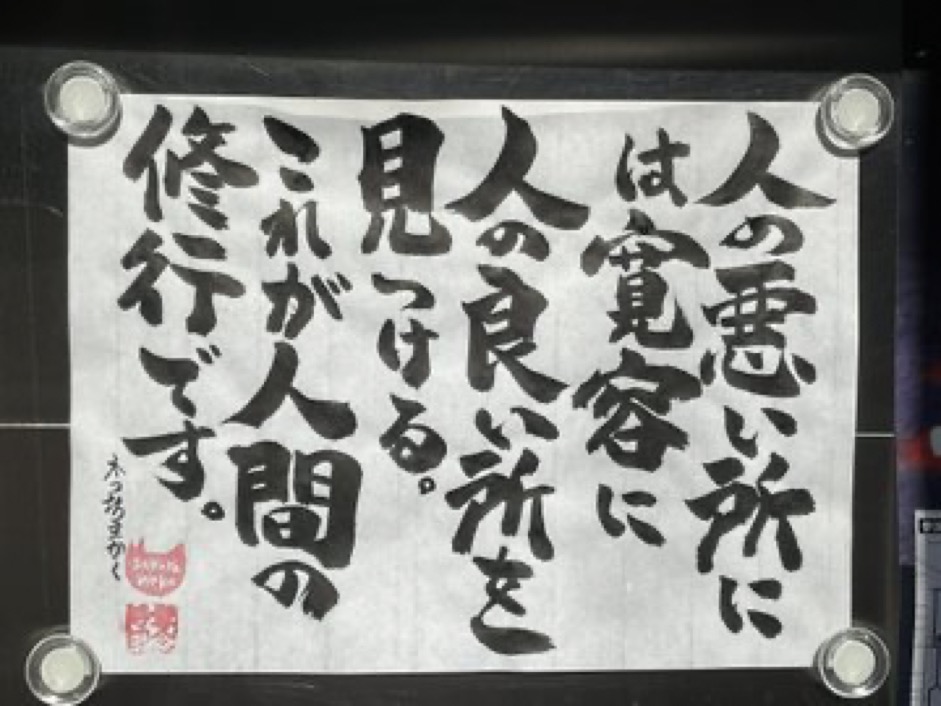 人の悪い所に
は寛容に
人の良い所を
見つける。
これが人間の
修行です。